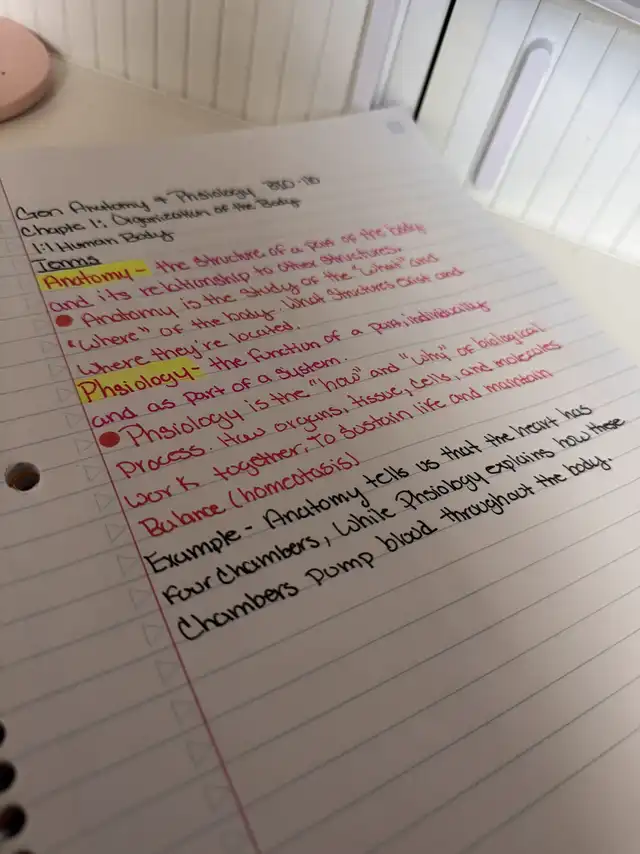 Gen Anatomy + Phsiology BIO-110
Chapte 1: Organization of the Body
1:1 Human Body
Terms
Anatomy - the structure of a part of the body
and its relationship to other structures.
• Anatomy is the study of the "what" and
"where" of the body. What structures exist and
where they're located.
Phsiology - the function of a part, individually
and as part of a system.
• Phsiology is the "how" and "why" of biological
process. How organs, tissue, cells, and molecules
work together. To sustain life and maintain
Balance (homeotasis)
Example - Anatomy tells us that the heart has
four chambers, while Phsiology explains how these
Chambers pump blood throughout the body.